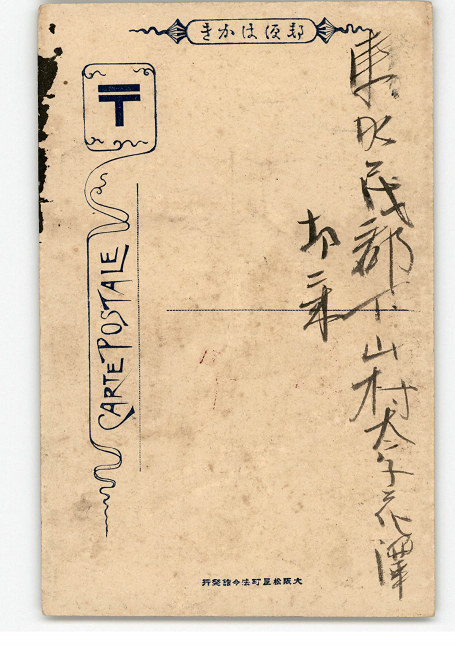 郵便はかき
〒
CARTE POSTALE
東加茂郡下山村大字花澤
大阪松屋町法令館發行